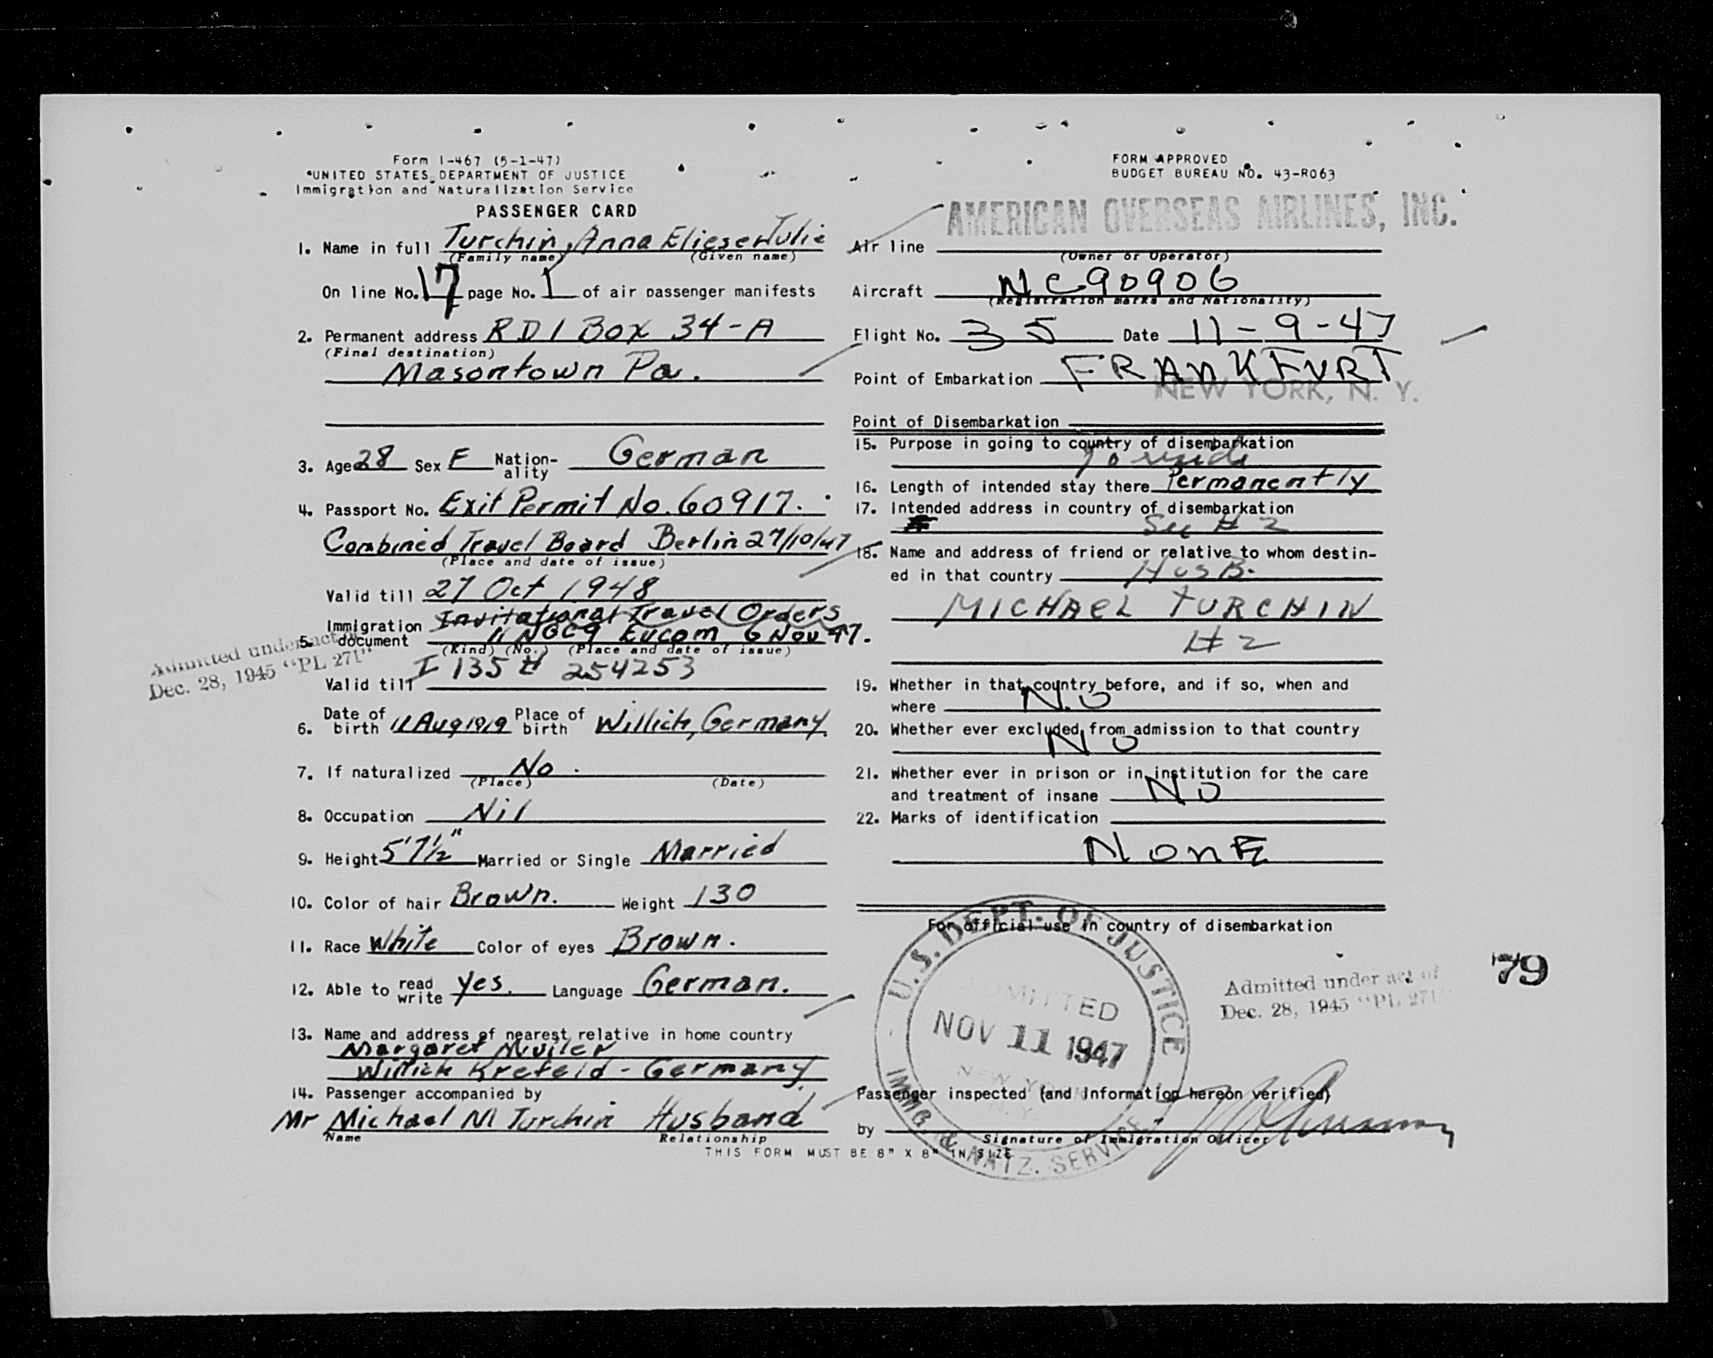 Form I-467 (5-1-47)
UNITED STATES DEPARTMENT OF JUSTICE
Immigration and Naturalization Service
PASSENGER CARD
1. Name in full Turchin, Anna Elieser Julie
(Family name) (Given name)
On line No. 17 page No. 1 of air passenger manifests
2. Permanent address RD 1 Box 34-A
(Final destination)
Masontown Pa.
3. Age 28 Sex F Nation-ality German
4. Passport No. Exit Permit No. 60917.
Combined Travel Board Berlin 27/10/47
(Place and date of issue)
Valid till 27 Oct 1948
Invitational Travel Orders
5. Immigration document 11 NGC9 Eucom 6 Nov 47.
(Kind) (No.) (Place and date of issue)
Valid till I 135 # 254253
Admitted under act of
Dec. 28, 1945 "PL 271"
6. Date of birth 11 Aug 1919 Place of birth Willich, Germany.
7. If naturalized No.
(Place) (Date)
8. Occupation Nil
9. Height 5'7½" Married or Single Married
10. Color of hair Brown. Weight 130
11. Race White Color of eyes Brown.
12. Able to read write Yes. Language German.
13. Name and address of nearest relative in home country
Margaret
Willich Krefeld - Germany.
14. Passenger accompanied by
Mr Michael M Turchin Husband
Name Relationship
THIS FORM MUST BE 8" X 8" IN SIZE
FORM APPROVED
BUDGET BUREAU NO. 43-R063
AMERICAN OVERSEAS AIRLINES, INC.
Air line
(Owner or Operator)
Aircraft NC90906
(Registration marks and Nationality)
Flight No. 35 Date 11-9-47
Point of Embarkation FRANKFURT
NEW YORK, N. Y.
Point of Disembarkation
15. Purpose in going to country of disembarkation
To reside
16. Length of intended stay there Permanently
17. Intended address in country of disembarkation
See # 2
18. Name and address of friend or relative to whom destin-
ed in that country HusB.
MICHAEL TURCHIN
# 2
19. Whether in that country before, and if so, when and
where No
20. Whether ever excluded from admission to that country
No
21. Whether ever in prison or in institution for the care
and treatment of insane No
22. Marks of identification
NonE
For official use in country of disembarkation
U.S. DEPT. OF JUSTICE
ADMITTED
NOV 11 1947
NEW YORK
N.Y.
IMMG. & NATZ. SERVICE
79
Admitted under act of
Dec. 28, 1945 "PL 271"
Passenger inspected (and information hereon verified)
by
Signature of Immigration Officer